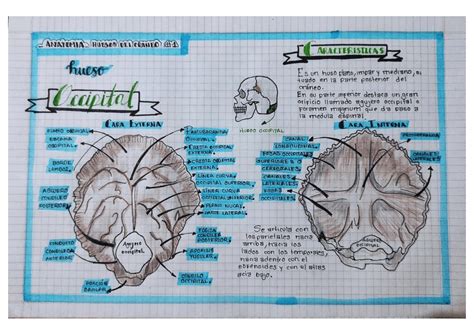 ANATOMIA HUESOS DEL CRANEO
hueso
Occipital
CARACTERISTICAS
Es un hueso plano, impar y mediano, si
tuado en la parte posterior del
cráneo.
En su parte inferior destaca un gran
orificio llamado agujero occipital o
foramen magnum que da paso a
la medula espinal.
HUESO OCCIPITAL
CARA EXTERNA
PLANO OCCIPITAL
ESCAMA
OCCIPITAL
BORDE
LAMBDO.
AGUJERO
CONDILEO
POSTERIOR
CONDUCTO
CONDILEO
ANTERIOR
PORCIÓN
BASILAR
PROTUBERANCIA
OCCIPITAL
CRESTA OCCIPITAL
EXTERNA
LINEA CURVA
OCCIPITAL SUPERIOR
LINEA CURVA
OCCIPITAL INFERIOR
PLANO NUCAL
PARTE LATERAL
FOSA
CONDILEA
POSTERIOR
CONDILO
OCCIPITAL
Agujero
occipital
CARA INTERNA
CANAL
LONGITUDINAL
FOSAS OCCIPITALES
SUPERIORES O
CEREBRALES
CANALES
LATERALES
FOSAS
CANALES
LATERALES
Agujero
occipital
Se articula con
los parietales hacia
arriba, hacia los
lados con los temporales,
hacia adentro con el
esfenoides y con el atlas
hacia bajo.